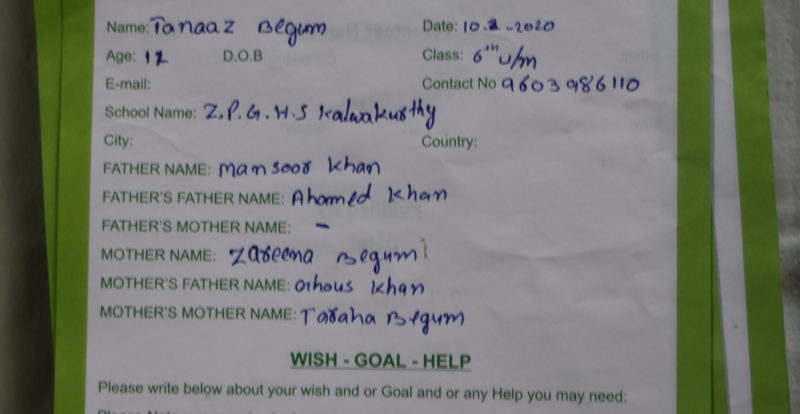 Name: Tanaaz Begum Date: 10.2-2020
Age: 12 D.O.B Class: 6th u/m
E-mail: Contact No 9603986110
School Name: Z.P.G.H.S Kalwakurthy
City: Country:
FATHER NAME: Mansoor Khan
FATHER'S FATHER NAME: Ahamed Khan
FATHER'S MOTHER NAME: -
MOTHER NAME: Zareena Begum
MOTHER'S FATHER NAME: Ghous Khan
MOTHER'S MOTHER NAME: Taraha Begum
WISH - GOAL - HELP
Please write below about your wish and or Goal and or any Help you may need: